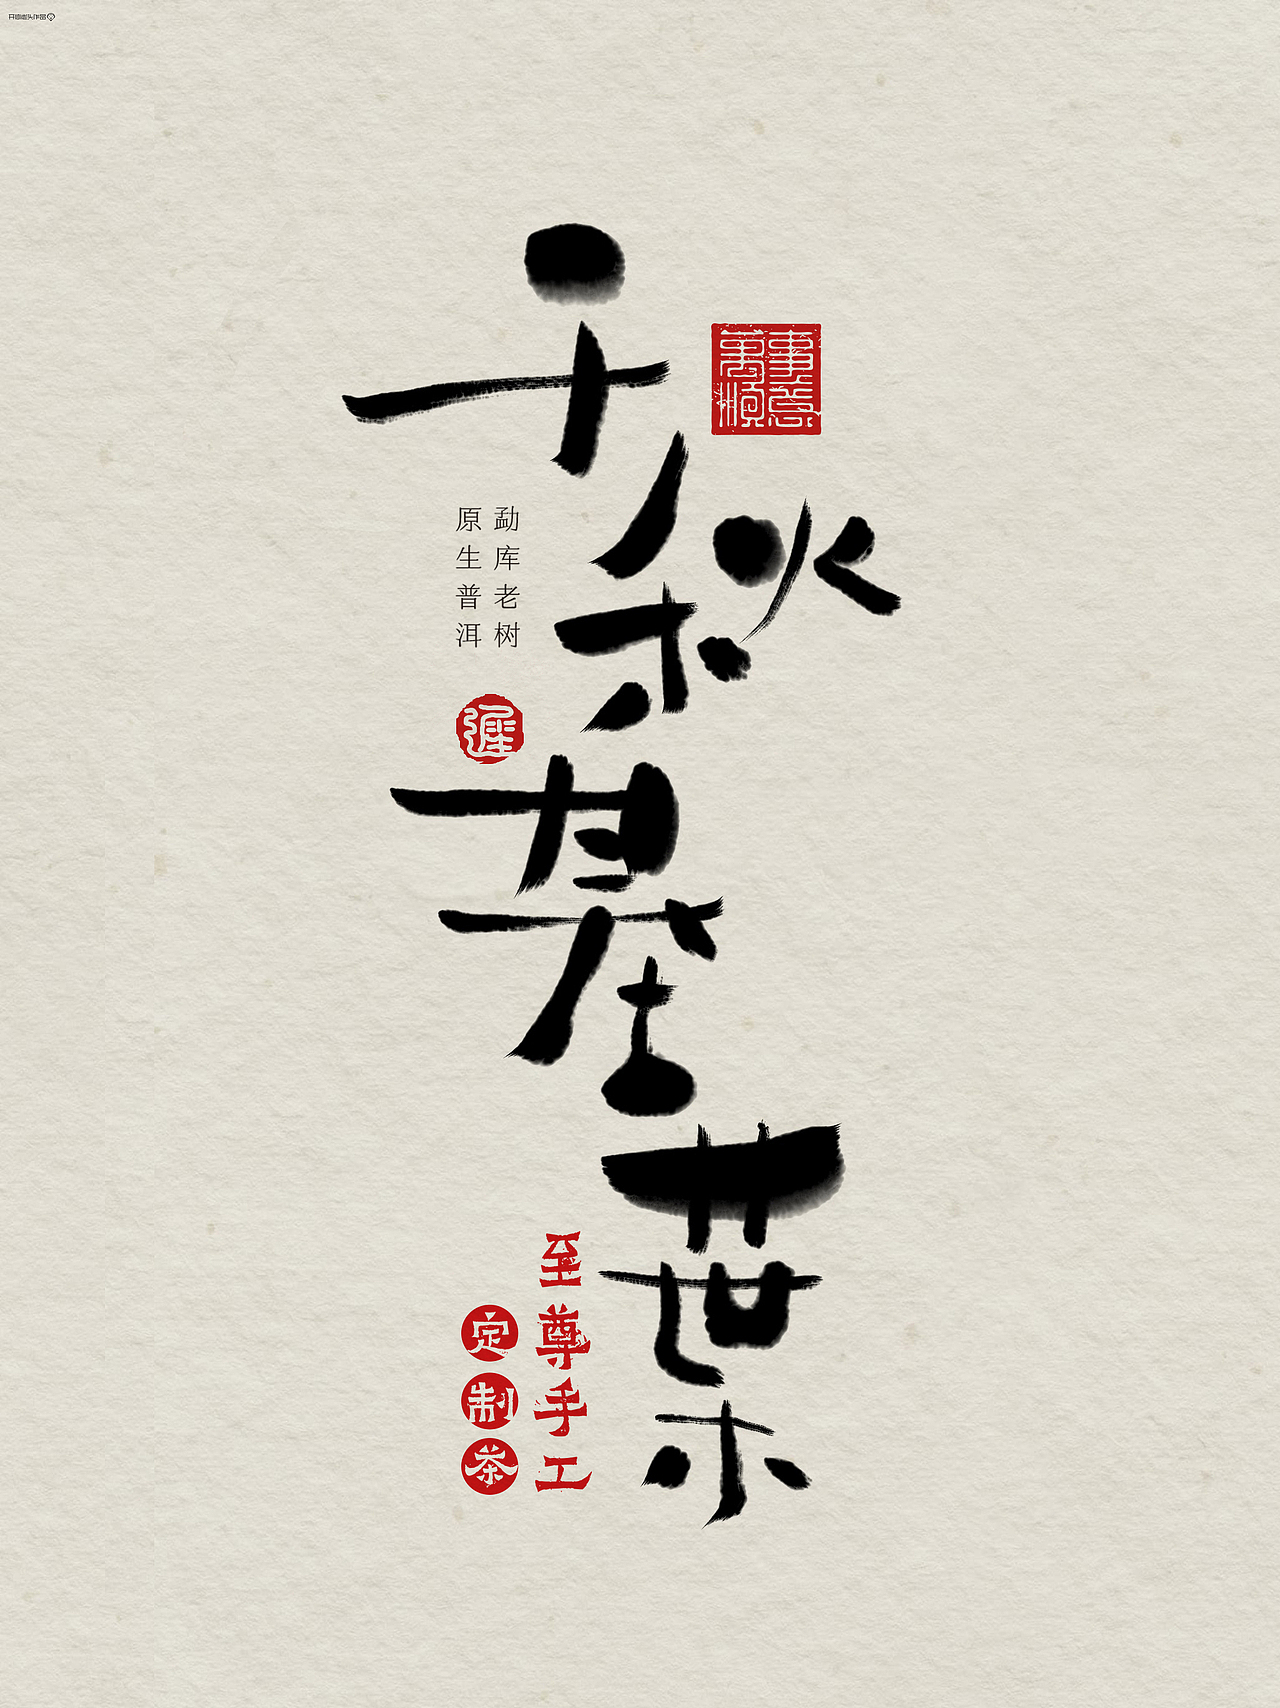 千秋基葉
萬事順意
勐库老树
原生普洱
至尊手工
定制茶